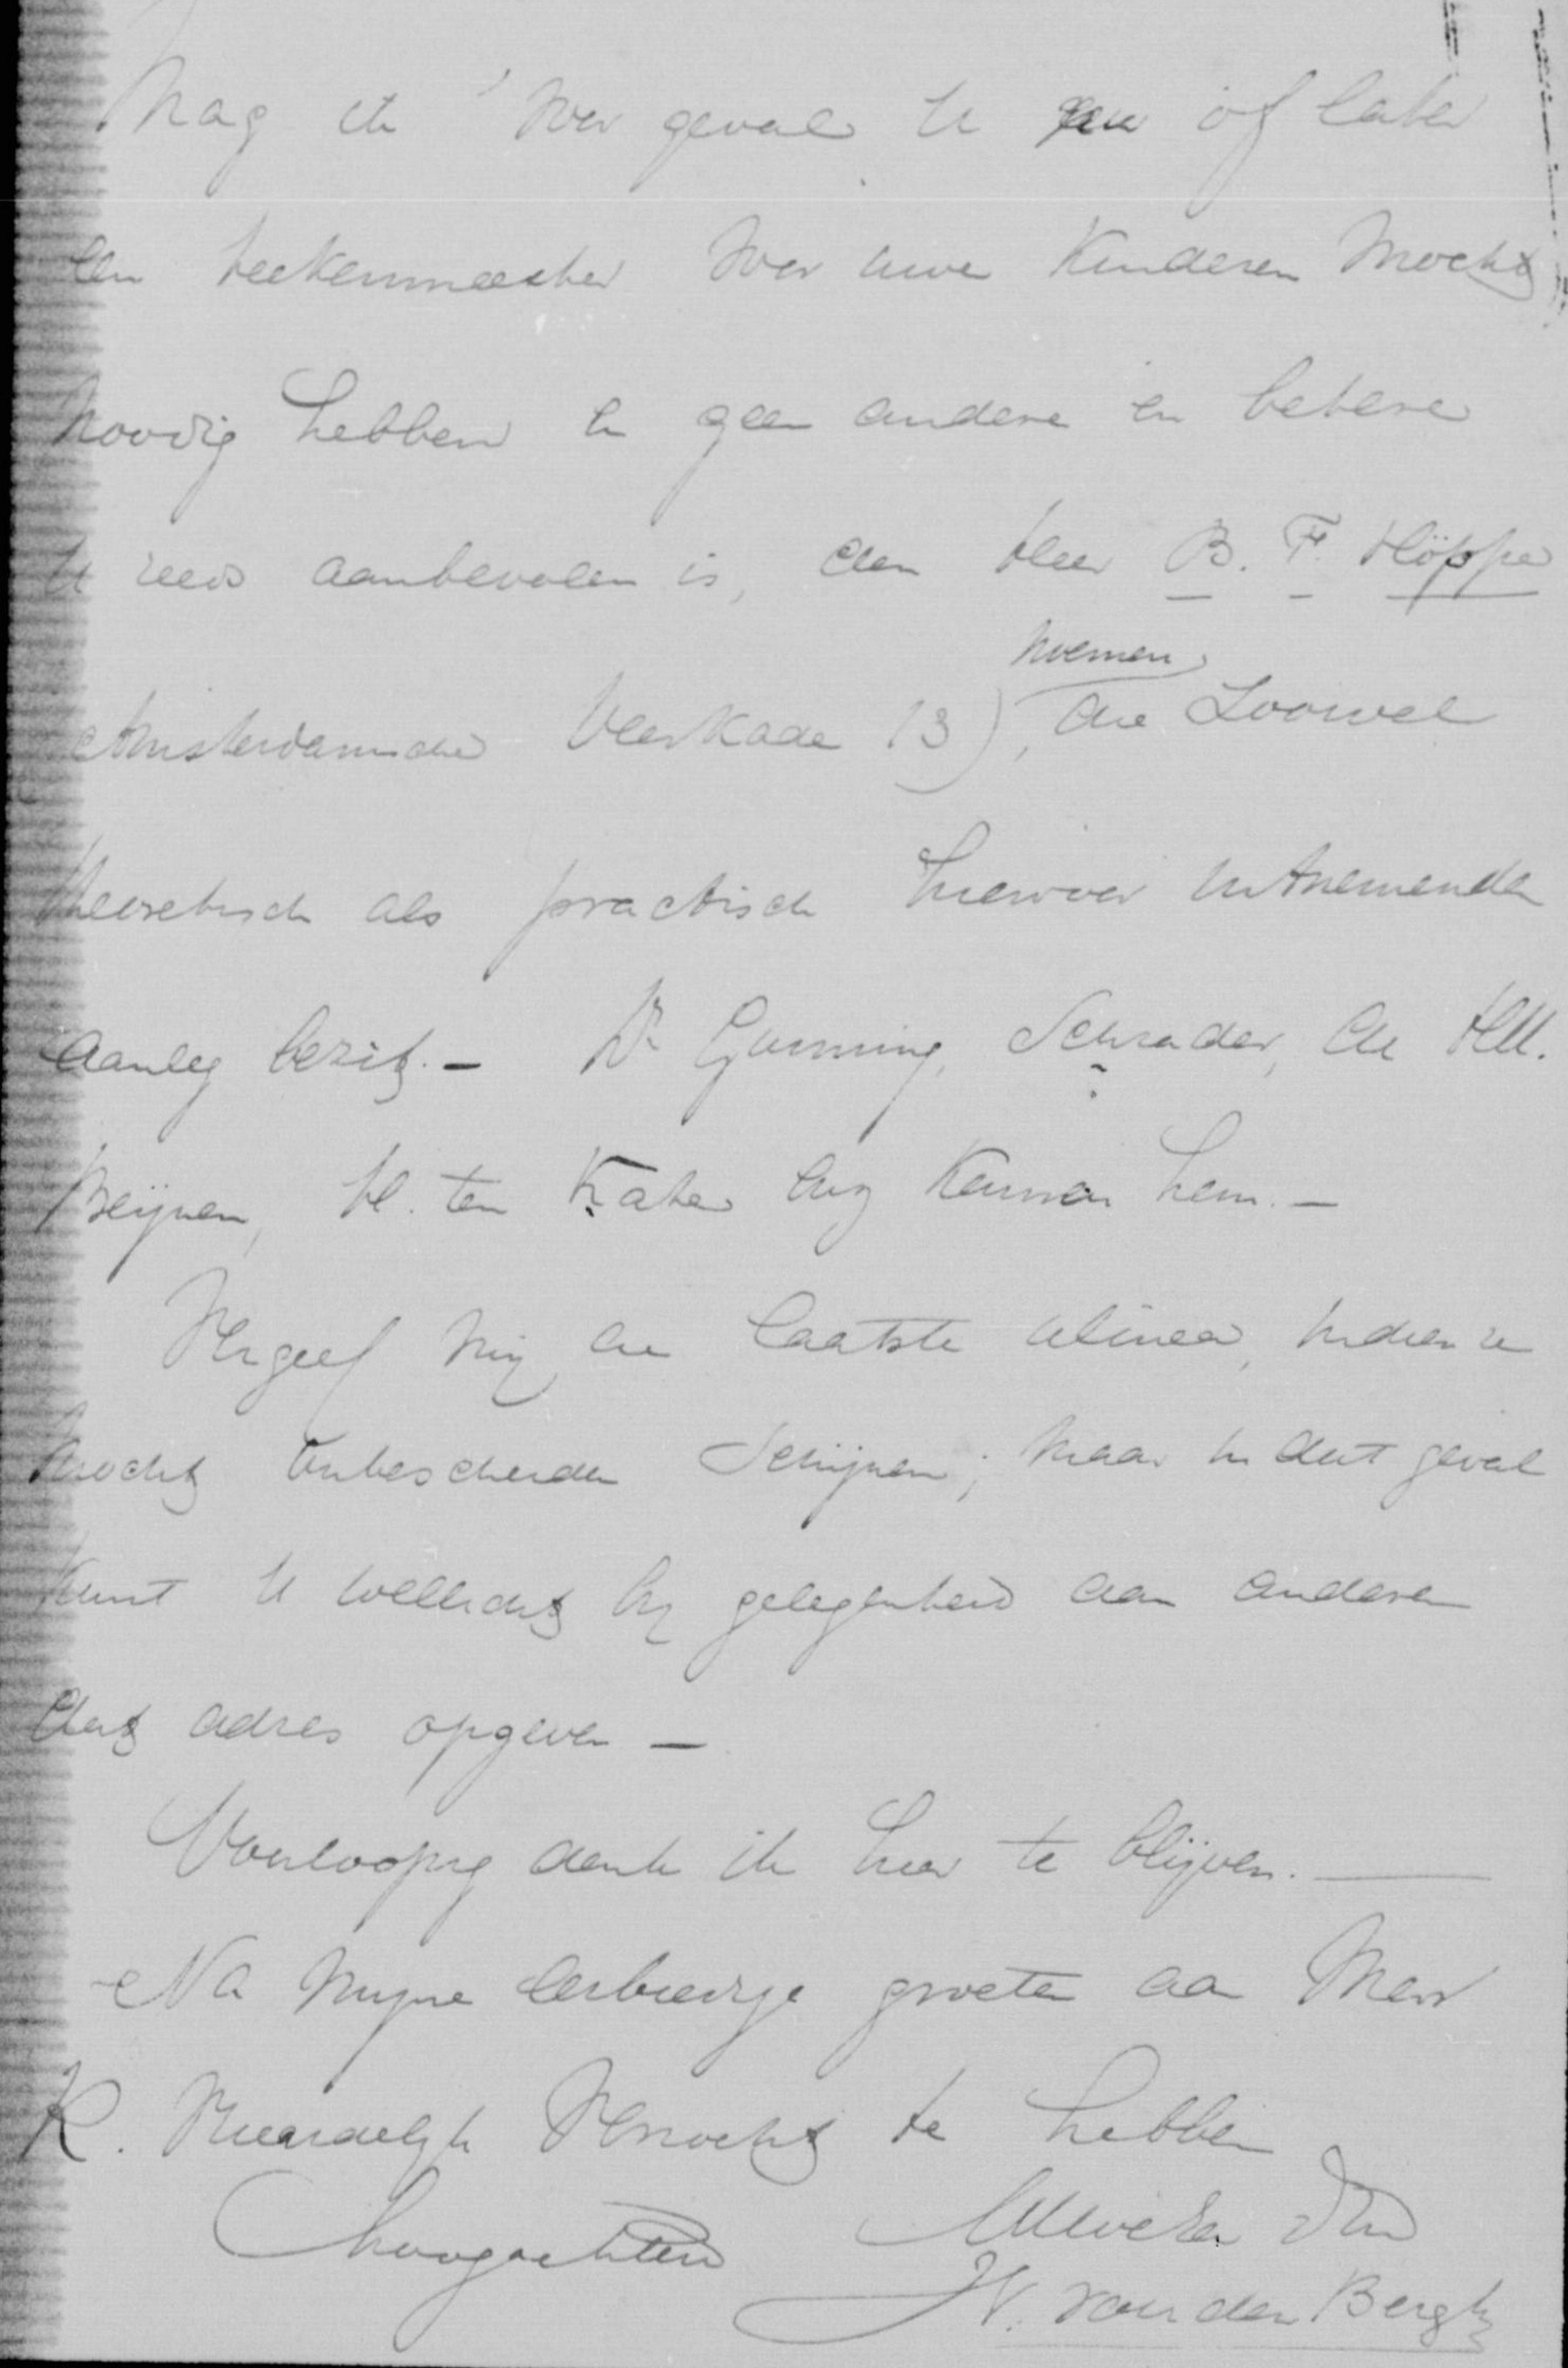 Mag ik voor geval U nu of later
een teekenmeester voor uwe kinderen mocht
noodig hebben en geen andere en betere
U reeds aanbevolen is, den Heer B. F. Höppe
noemen
Amsterdamsche Veerkade 13), die zoowel
theoretisch als practisch hiervoor uitnemenden
aanleg bezit. — Dr Gunning, Schrader, de HH.
Beijnen, H. ten Kate enz kennen hem. —
Vergeef mij de laatste alinea, indien ze
mocht onbescheiden schijnen; maar in dat geval
kunt U wellicht bij gelegenheid aan anderen
dat adres opgeven —
Voorloopig denk ik hier te blijven. —
Na mijne eerbiedige groeten aan Mevr
K. vriendelijk verzocht te hebben
hoogachtend Uwe Dr
H. van den Bergh